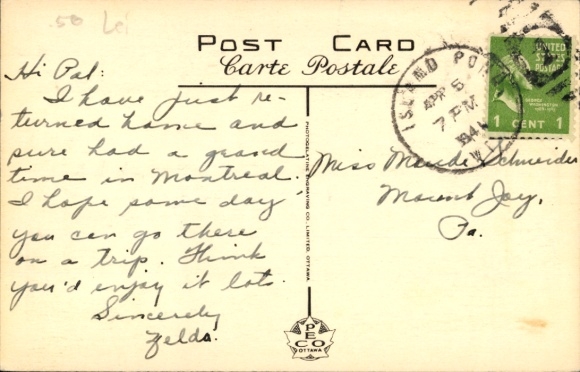 .50
POST CARD
Carte Postale
Hi Pal:
I have just re-
turned home and
sure had a grand
time in Montreal.
I hope some day
you can go there
on a trip. Think
you'd enjoy it lots.
Sincerely
Zelda.
PHOTOGELATINE ENGRAVING CO. LIMITED. OTTAWA
PECO
OTTAWA
ISLAND POND
APR 5
7 PM
UNITED
STATES
POSTAGE
GEORGE
WASHINGTON
1 CENT 1
Miss Maude Schneider
Mount Joy,
Pa.